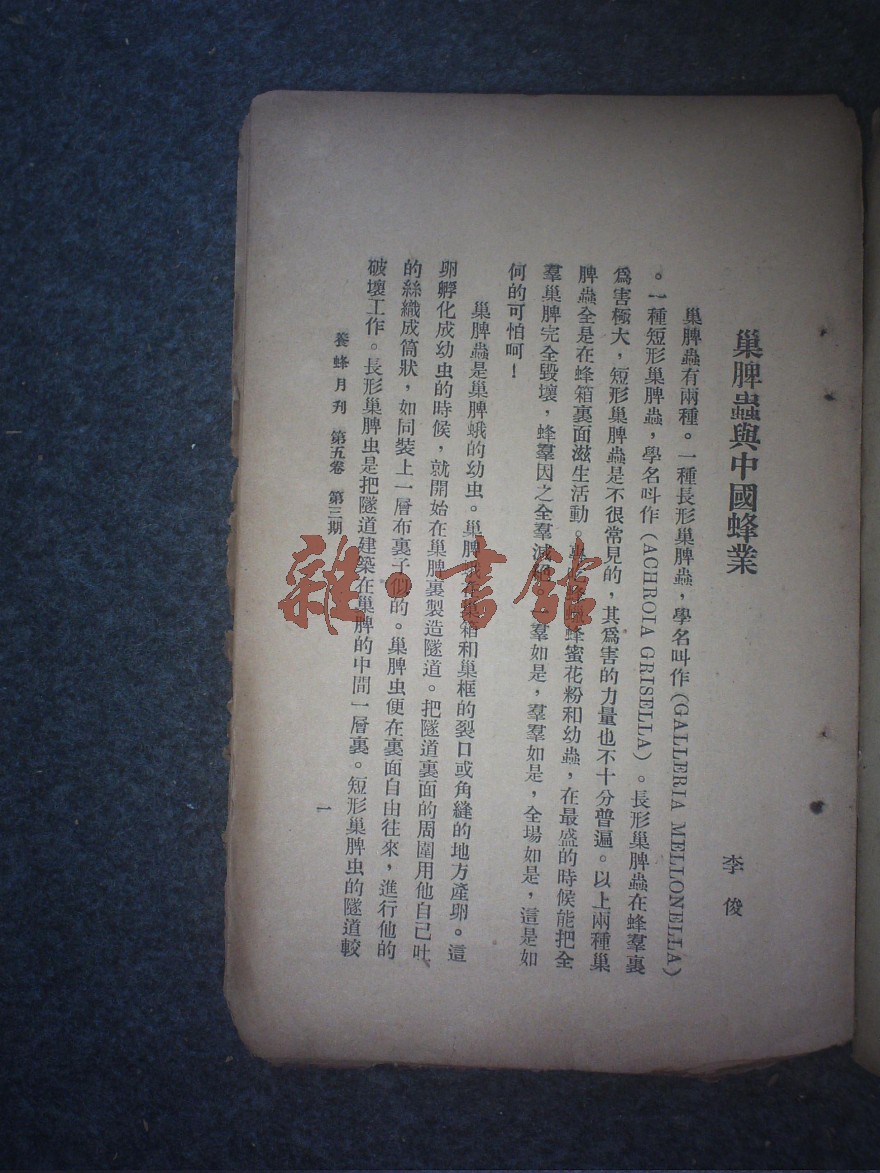 巢脾蟲與中國蜂業
李俊
巢脾蟲有兩種。一種長形巢脾蟲，學名叫作(GALLERIA MELLONELLA)
。一種短形巢脾蟲，學名叫作(ACHROIA GRISELLA)。長形巢脾蟲在蜂羣裏
爲害極大，短形巢脾蟲是不很常見的，其爲害的力量也不十分普遍。以上兩種巢
脾蟲全是在蜂箱裏面滋生活動。蜂蜜花粉和幼蟲，在最盛的時候能把全
羣巢脾完全毀壞，蜂羣因之全羣滅羣如是，羣羣如是，全場如是，這是如
何的可怕呵！
巢脾蟲是巢脾蛾的幼虫。巢脾箱和巢框的裂口或角縫的地方產卵。這
卵孵化成幼虫的時候，就開始在巢脾裏製造隧道。把隧道裏面的周圍用他自己吐
的絲織成筒狀，如同裝上一層布裏子似的。巢脾虫便在裏面自由往來，進行他的
破壞工作。長形巢脾虫是把隧道建築在巢脾的中間一層裏。短形巢脾虫的隧道較
養蜂月刋 第五卷 第三期
一
雜·書館